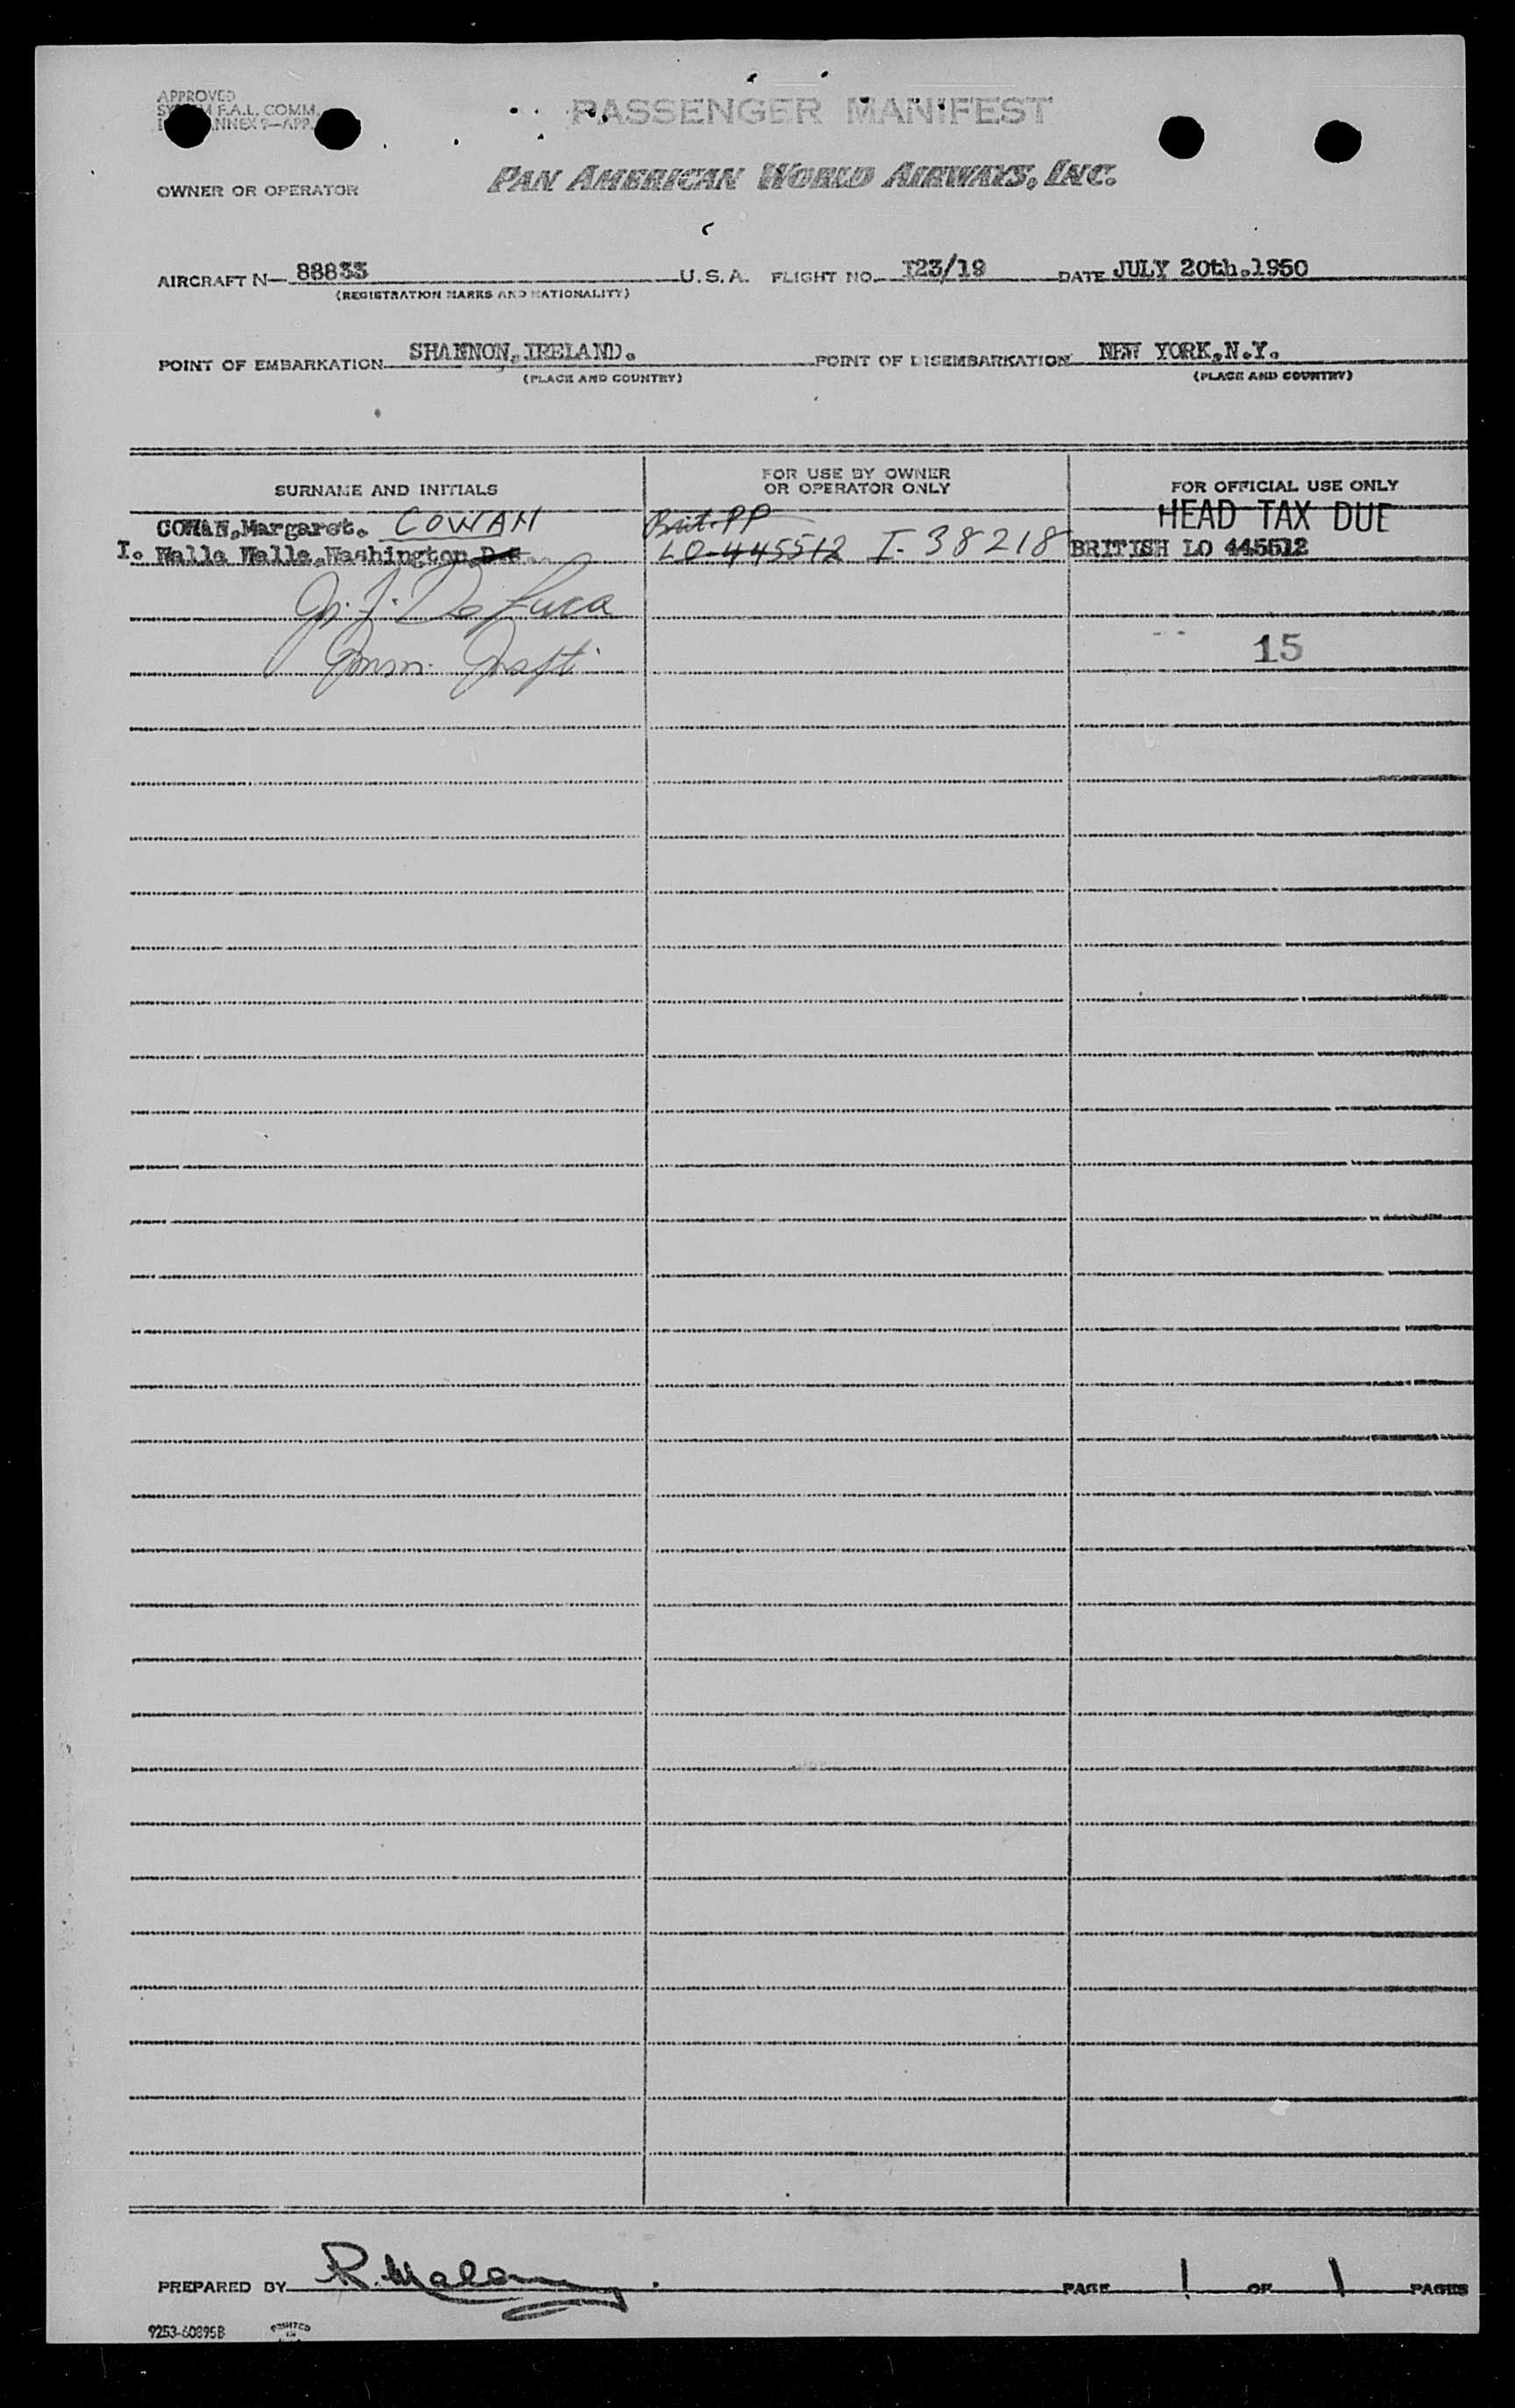 APPROVED
F.A.L. COMM.
ANNEX 9—APP.
PASSENGER MANIFEST
OWNER OR OPERATOR
PAN AMERICAN WORLD AIRWAYS, INC.
AIRCRAFT N— 88833 U.S.A. FLIGHT NO. I23/19 DATE JULY 20th.1950
(REGISTRATION MARKS AND NATIONALITY)
POINT OF EMBARKATION SHANNON, IRELAND. POINT OF DISEMBARKATION NEW YORK,N.Y.
(PLACE AND COUNTRY) (PLACE AND COUNTRY)
SURNAME AND INITIALS
FOR USE BY OWNER
OR OPERATOR ONLY
FOR OFFICIAL USE ONLY
HEAD TAX DUE
COWAN,Margaret. COWAN Brit. PP
I. Walla Walla,Washington D.C. LO-445512 I-38218 BRITISH LO 445512
De Luca
Imm. Inspt.
15
PREPARED BY PAGE 1 OF 1 PAGES
9253-60895B
PRINTED
IN